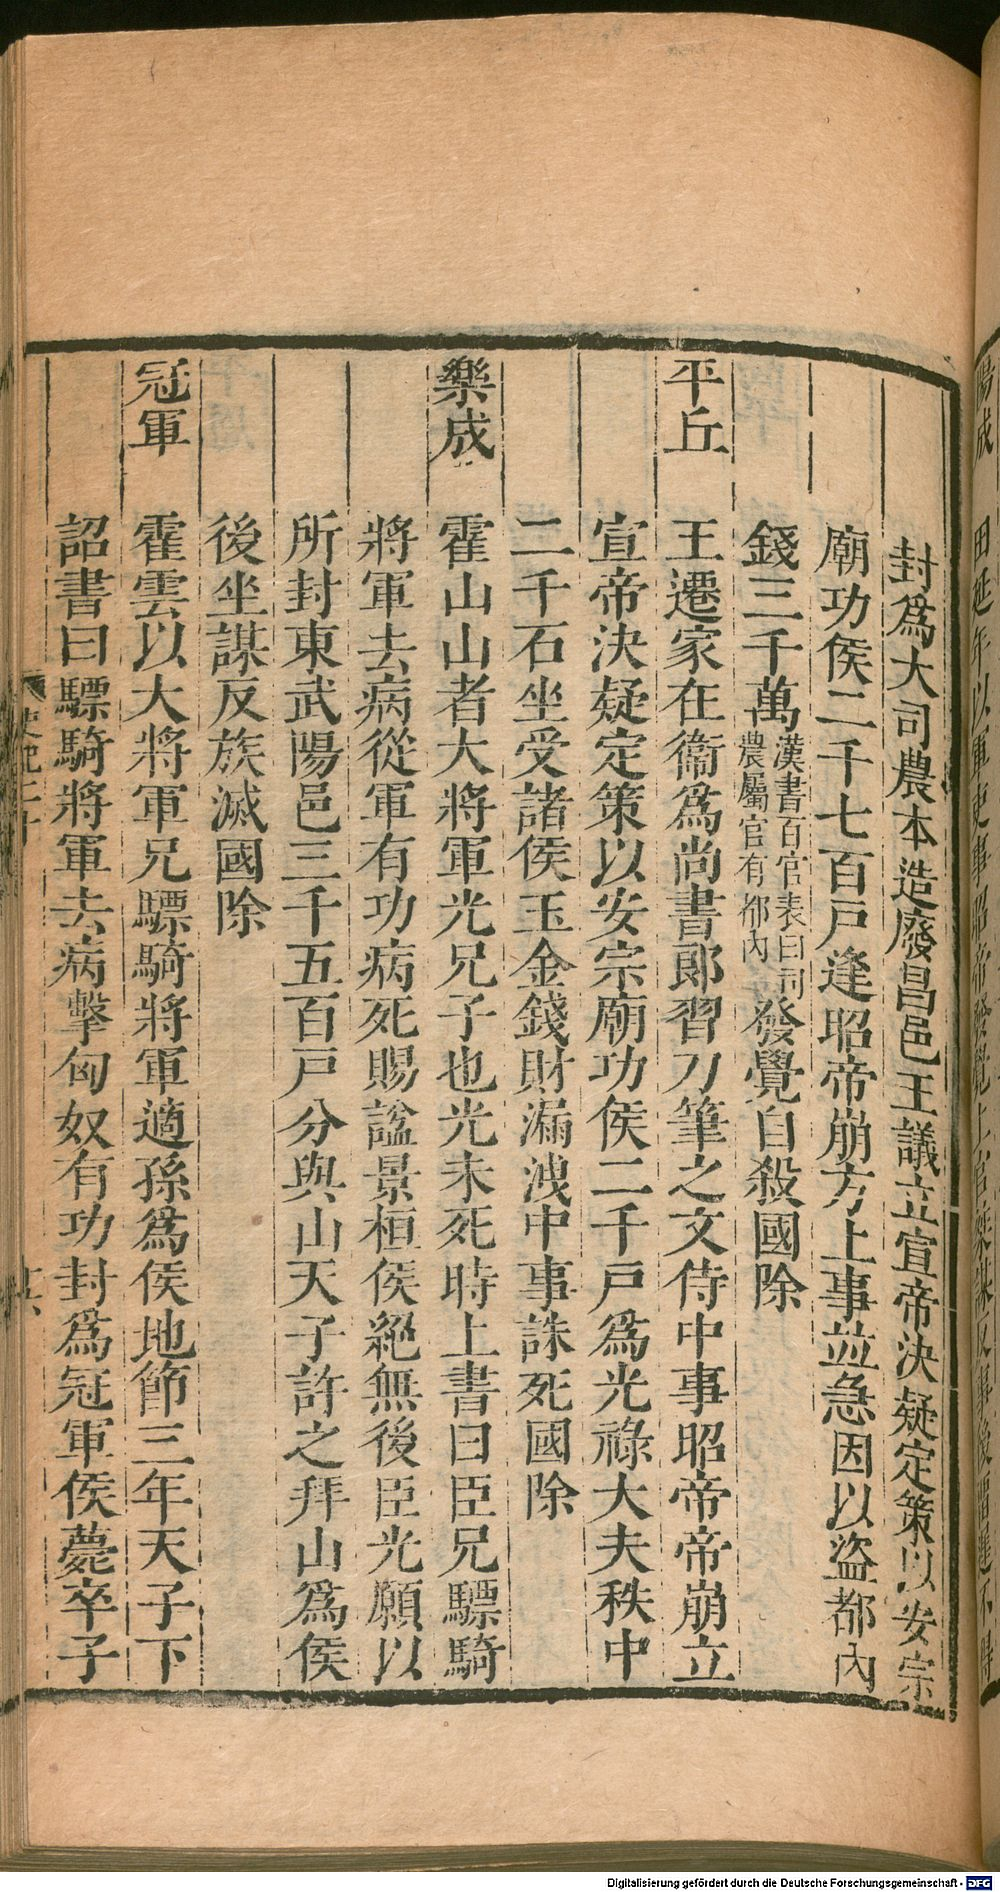 陽成 田延年以軍吏事昭帝發覺上官桀謀反事後留遲不得
封爲大司農本造廢昌邑王議立宣帝決疑定策以安宗
廟功侯二千七百戸逢昭帝崩方上事並急因以盜都內
錢三千萬漢書百官表曰司農屬官有都內發覺自殺國除
平丘 王遷家在衞爲尚書郎習刀筆之文侍中事昭帝帝崩立
宣帝決疑定策以安宗廟功侯二千戸爲光祿大夫秩中
二千石坐受諸侯王金錢財漏洩中事誅死國除
樂成 霍山山者大將軍光兄子也光未死時上書曰臣兄驃騎
將軍去病從軍有功病死賜諡景桓侯絕無後臣光願以
所封東武陽邑三千五百戸分與山天子許之拜山爲侯
後坐謀反族滅國除
冠軍 霍雲以大將軍兄驃騎將軍適孫爲侯地節三年天子下
詔書曰驃騎將軍去病擊匈奴有功封爲冠軍侯薨卒子
史記二十
Digitalisierung gefördert durch die Deutsche Forschungsgemeinschaft - DFG